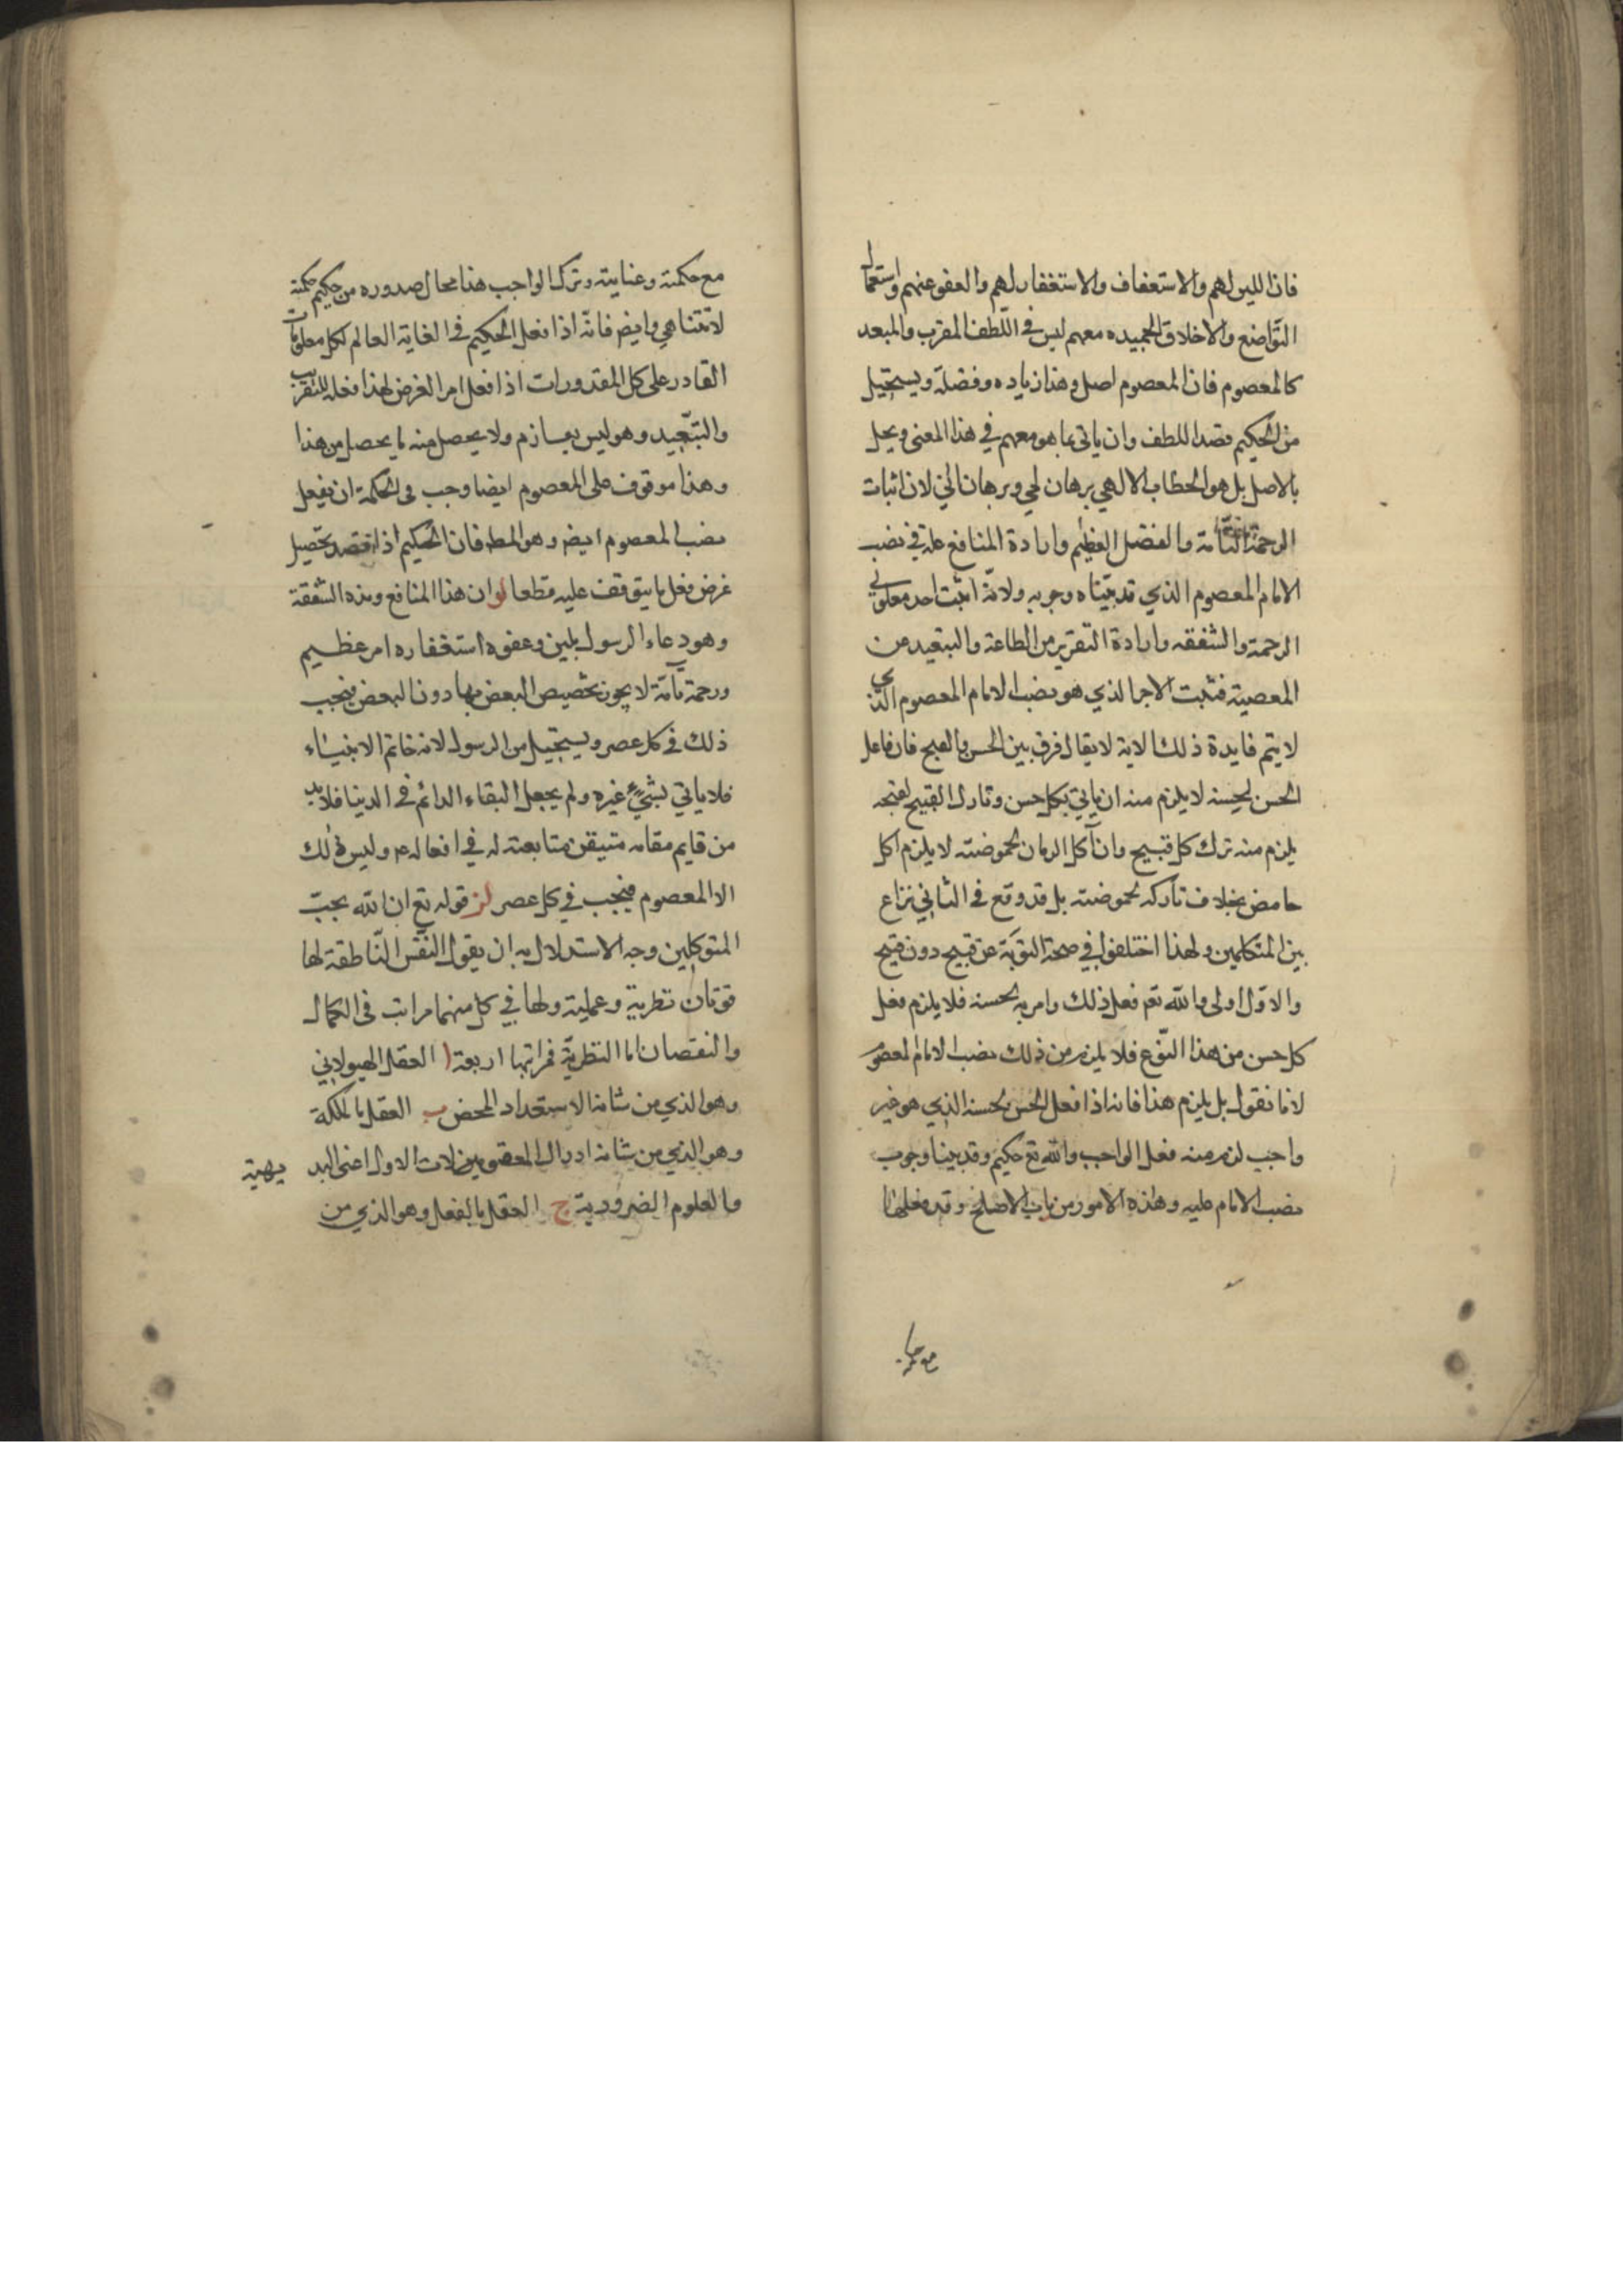 فان اللين لهم والاستعفاف والاستغفار لهم والعفو عنهم واستعمال
التواضع والاخلاق الحميده معهم ليس في اللّطف المقرب والمبعد
كالمعصوم فان المعصوم اصل وهذا زياده وفضلة ويستحيل
من الحكيم قصد اللطف وان ياتى بما هو معهم في هذا المعنى ويخل
بالاصل بل هو الخطاب الالهي برهان لمي وبرهان اني لان اثبات
الرحمة التامّة والفضل العظيم وارادة المنافع علة في نصب
الامام المعصوم الذي قد بيّناه وجوبه ولانّه اثبت احد معلولي
الرحمة والشفقه وارادة التقريب من الطاعة والتبعيد عن
المعصية فثبت الاخر الذي هو نصب الامام المعصوم الذي
لا يتم فايدة ذلك الا به لا يقال فرق بين الحسن والقبح فان فاعل
الحسن لحسنه لا يلزم منه ان ياتي بكل حسن وتارك القبيح لقبحه
يلزم منه ترك كل قبيح وان آكل الرمان لحموضته لا يلزم اكل
حامض بخلاف تاركه لحموضته بل قد وقع في الثاني نزاع
بين المتكلمين ولهذا اختلفوا في صحة التوبة عن قبيح دون قبيح
والاوّل اولى والله تعـ فعل ذلك وامر به لحسنه فلا يلزم فعل
كل حسن من هذا النوّع فلا يلزم من ذلك نصب الامام المعصوم
لانا نقول بل يلزم هذا فانه اذا فعل الحسن لحسنه الذي هو غير
واجب لزم منه فعل الواجب والله تع حكيم وقد بينا وجوب
نصب الامام عليه وهذه الامور من باب الاصلح وقد فعلها
مع حكمته
مع حكمته وعنايته وترك الواجب هنا محال صدوره من حكيم حكمته
لا تتناهي وايضـ فانّه اذا فعل الحكيم في الغاية العالم لكل معلومات
القادر على كل المقدورات اذا فعل امرا لغرض لهذا فعله للتقريب
والتبّعيد وهو ليس بعازم ولا يحصل منه ما يحصل من هذا
وهذا موقوف على المعصوم ايضا وجب في الحكمة ان يفعل
نصب المعصوم ايضـ وهو المطـ فان الحكيم اذا قصد تحصيل
غرض فعل ما يتوقف عليه قطعا لو ان هذا المنافع وهذه الشفقة
وهو دعاء الرسول بلين وعفوه استغفاره امر عظيم
ورحمة تآمّة لا يجوز تخصيص البعض بها دون البعض فيجب
ذلك في كل عصر ويستحيل من الرسول لانه خاتم الانبيآء
فلا ياتي بشيء غيره ولم يجعل البقاء الدائم في الدنيا فلا بد
من قايم مقامه متيقن متابعته له في افعاله عـ وليس ذلك
الا المعصوم فيجب في كل عصر لز قوله تع ان الله يحبّ
المتوكلين وجه الاستدلال به ان يقول النّفس النّاطقة لها
قوتان نظرية وعملية ولها في كل منهما مراتب في الكمال
والنقصان اما النظريّة فمراتبها اربعة ا العقل الهيولاني
وهو الذي من شانه الاستعداد المحض ب العقل بالملكة
وهو الذي من شانه ادراك المعقولات الاول اعنى البديهية
والعلوم الضرورية ج العقل بالفعل وهو الذي من